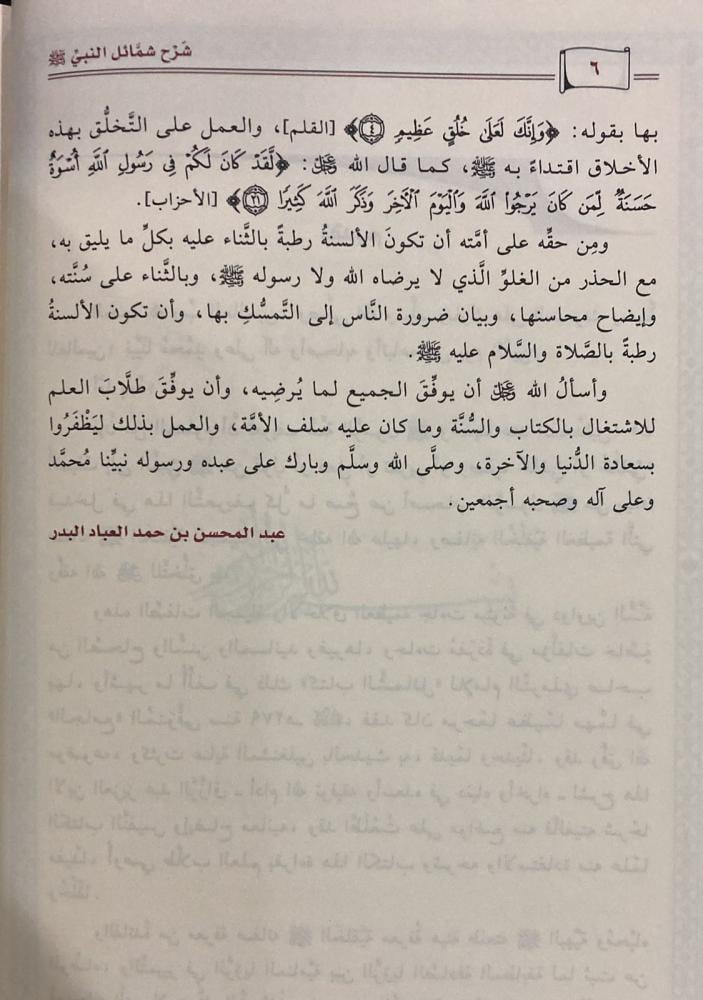 شَرْح شمَائل النبيِّ ﷺ
٦
بها بقوله: ﴿وَإِنَّكَ لَعَلَىٰ خُلُقٍ عَظِيمٍ ٤﴾ [القلم]، والعمل على التَّخلُّق بهذه
الأخلاق اقتداءً به ﷺ، كما قال الله ﷿: ﴿لَّقَدْ كَانَ لَكُمْ فِي رَسُولِ ٱللَّهِ أُسْوَةٌ
حَسَنَةٌ لِّمَن كَانَ يَرْجُوا۟ ٱللَّهَ وَٱلْيَوْمَ ٱلْآخِرَ وَذَكَرَ ٱللَّهَ كَثِيرًا ٢١﴾ [الأحزاب].
ومِن حقِّه على أمَّته أن تكونَ الألسنةُ رطبةً بالثَّناء عليه بكلِّ ما يليق به،
مع الحذر من الغلوِّ الَّذي لا يرضاه الله ولا رسوله ﷺ، وبالثَّناء على سُنَّته،
وإيضاح محاسنها، وبيان ضرورة النَّاس إلى التَّمسُّكِ بها، وأن تكون الألسنةُ
رطبةً بالصَّلاة والسَّلام عليه ﷺ.
وأسألُ الله ﷿ أن يوفِّقَ الجميع لما يُرضِيه، وأن يوفِّقَ طلَّابَ العلم
للاشتغال بالكتاب والسُّنَّة وما كان عليه سلف الأمَّة، والعمل بذلك ليَظْفَرُوا
بسعادة الدُّنيا والآخرة، وصلَّى الله وسلَّم وبارك على عبده ورسوله نبيِّنا مُحمَّد
وعلى آله وصحبه أجمعين.
عبد المحسن بن حمد العباد البدر